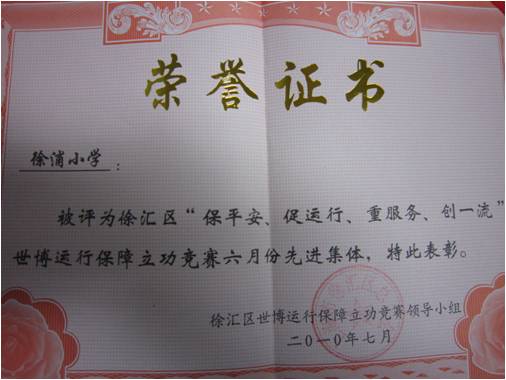 荣誉证书
徐浦小学：
被评为徐汇区“保平安、促运行、重服务、创一流”
世博运行保障立功竞赛六月份先进集体，特此表彰。
徐汇区世博运行保障立功竞赛领导小组
二〇一〇年七月